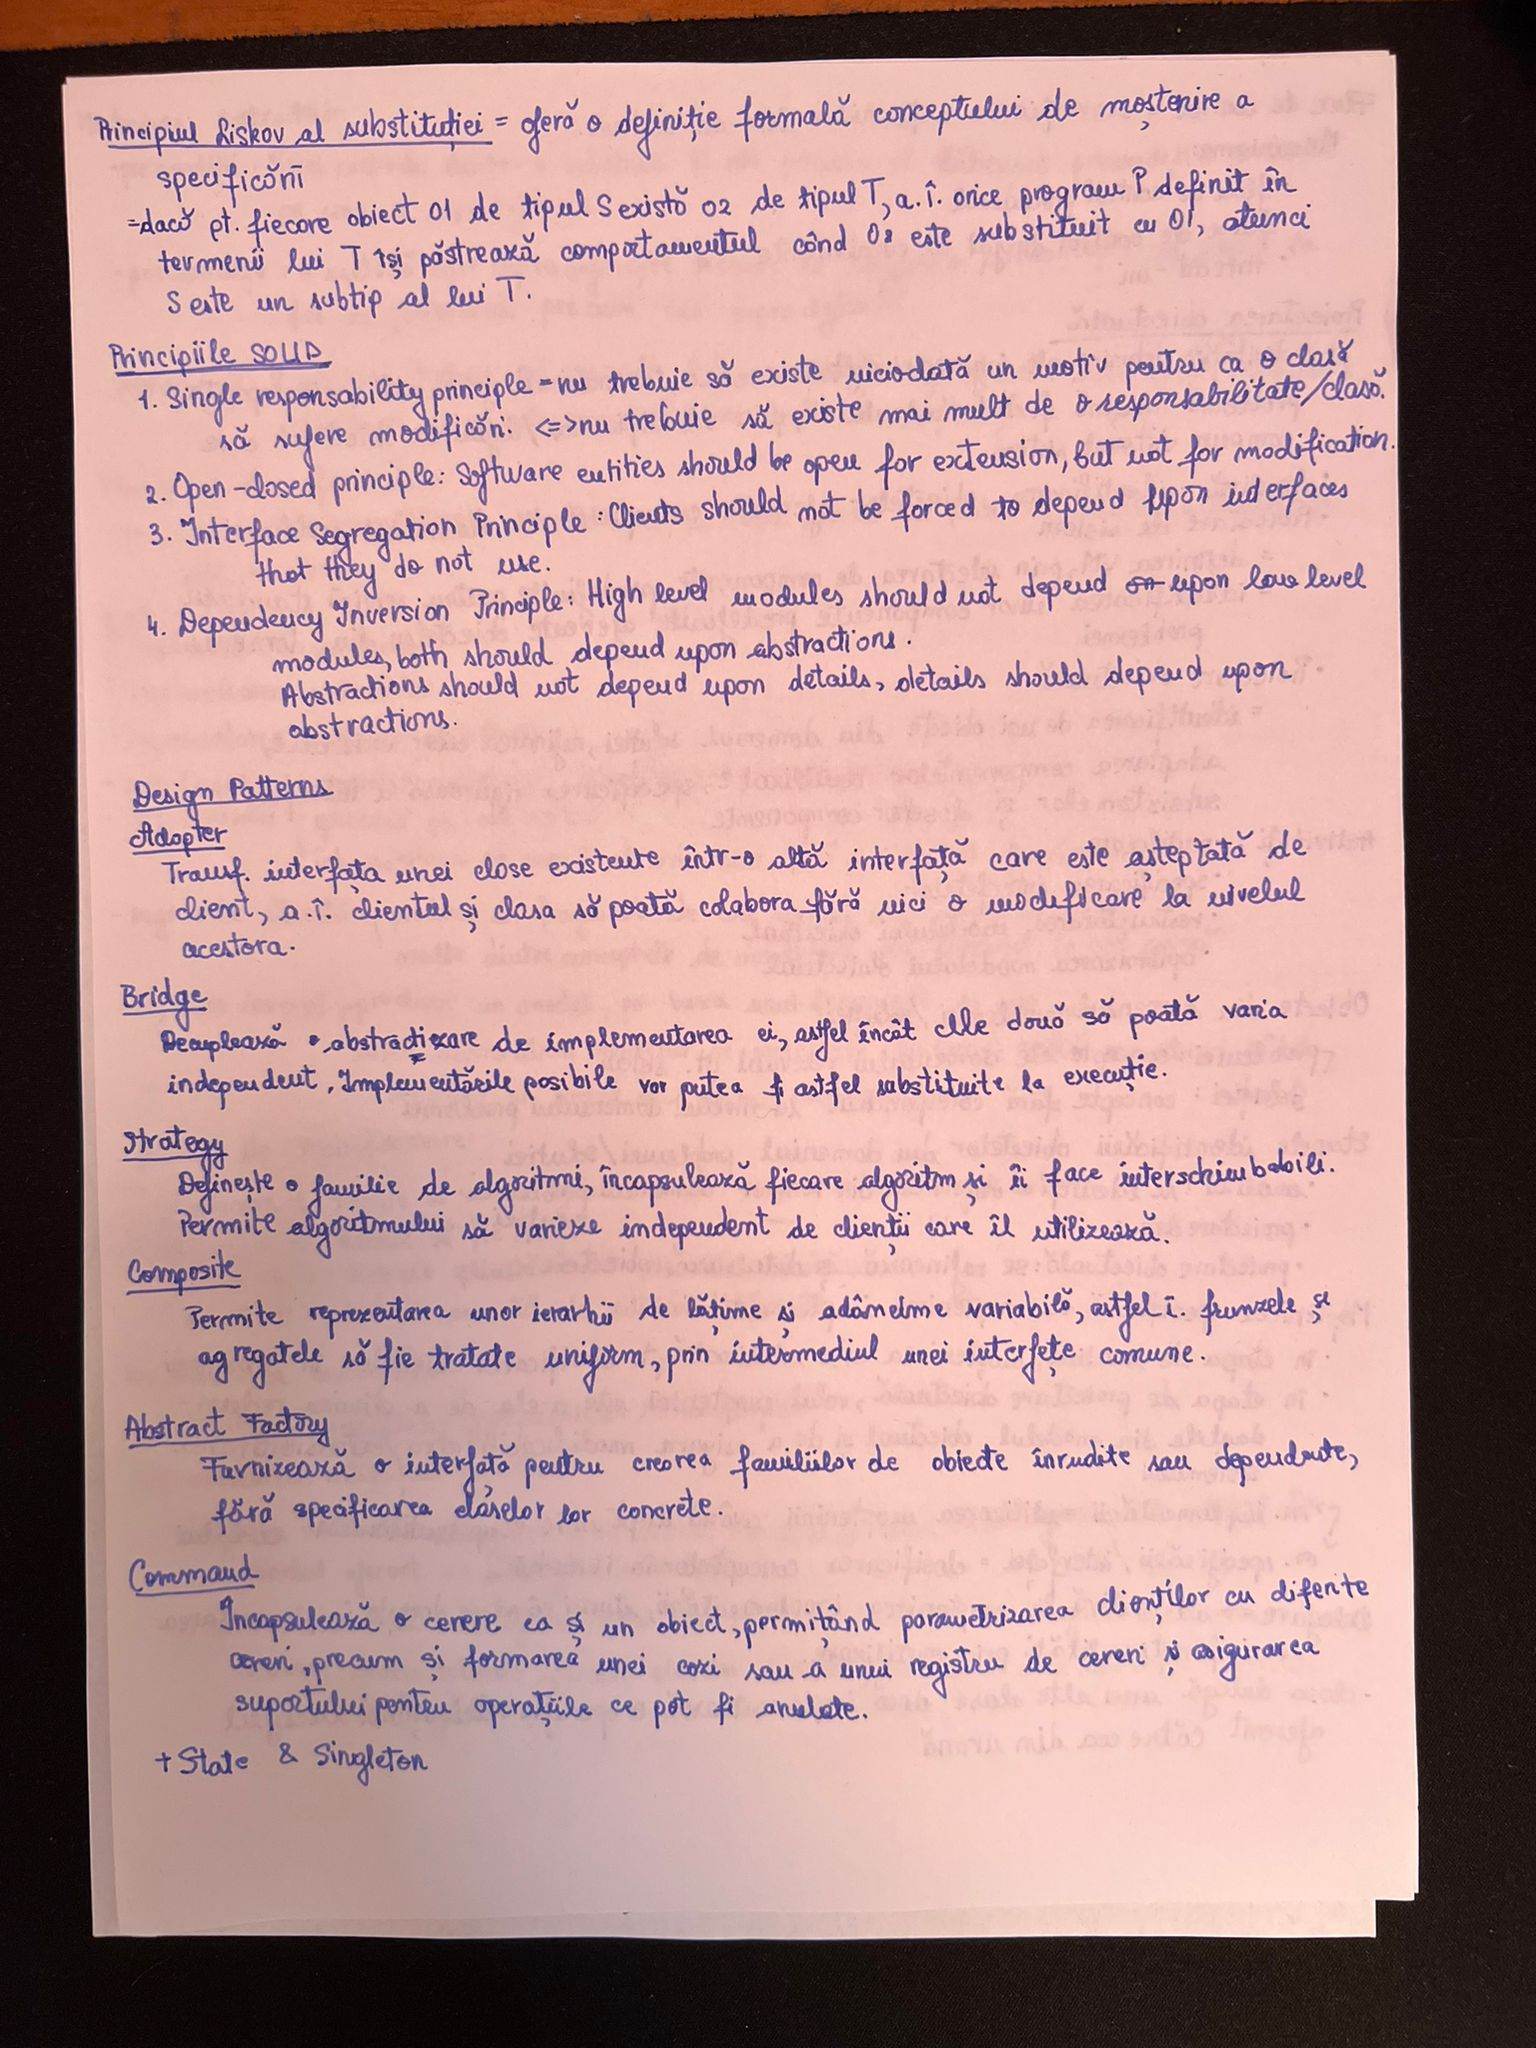 Principiul Liskov al substituției = oferă o definiție formală conceptului de moștenire a
specificării
= dacă pt. fiecare obiect O1 de tipul S există O2 de tipul T, a.î. orice program P definit în
termenii lui T își păstrează comportamentul când O2 este substituit cu O1, atunci
S este un subtip al lui T.
Principiile SOLID
1. Single responsability principle = nu trebuie să existe niciodată un motiv pentru ca o clasă
să sufere modificări. <=> nu trebuie să existe mai mult de o responsabilitate/clasă.
2. Open-closed principle: Software entities should be open for extension, but not for modification.
3. Interface Segregation Principle: Clients should not be forced to depend upon interfaces
that they do not use.
4. Dependency Inversion Principle: High level modules should not depend on upon low level
modules, both should depend upon abstractions.
Abstractions should not depend upon details, details should depend upon
abstractions.
Design Patterns
Adapter
Transf. interfața unei clase existente într-o altă interfață care este așteptată de
client, a.î. clientul și clasa să poată colabora fără nici o modificare la nivelul
acestora.
Bridge
Decuplează o abstractizare de implementarea ei, astfel încât cele două să poată varia
independent. Implementările posibile vor putea fi astfel substituite la execuție.
Strategy
Definește o familie de algoritmi, încapsulează fiecare algoritm și îi face interschimbabili.
Permite algoritmului să varieze independent de clienții care îl utilizează.
Composite
Permite reprezentarea unor ierarhii de lățime și adâncime variabilă, astfel î. frunzele și
agregatele să fie tratate uniform, prin intermediul unei interfețe comune.
Abstract Factory
Furnizează o interfață pentru crearea familiilor de obiecte înrudite sau dependente,
fără specificarea claselor lor concrete.
Command
Încapsulează o cerere ca și un obiect, permițând parametrizarea clienților cu diferite
cereri, precum și formarea unei cozi sau a unui registru de cereri și asigurarea
suportului pentru operațiile ce pot fi anulate.
+ State & Singleton